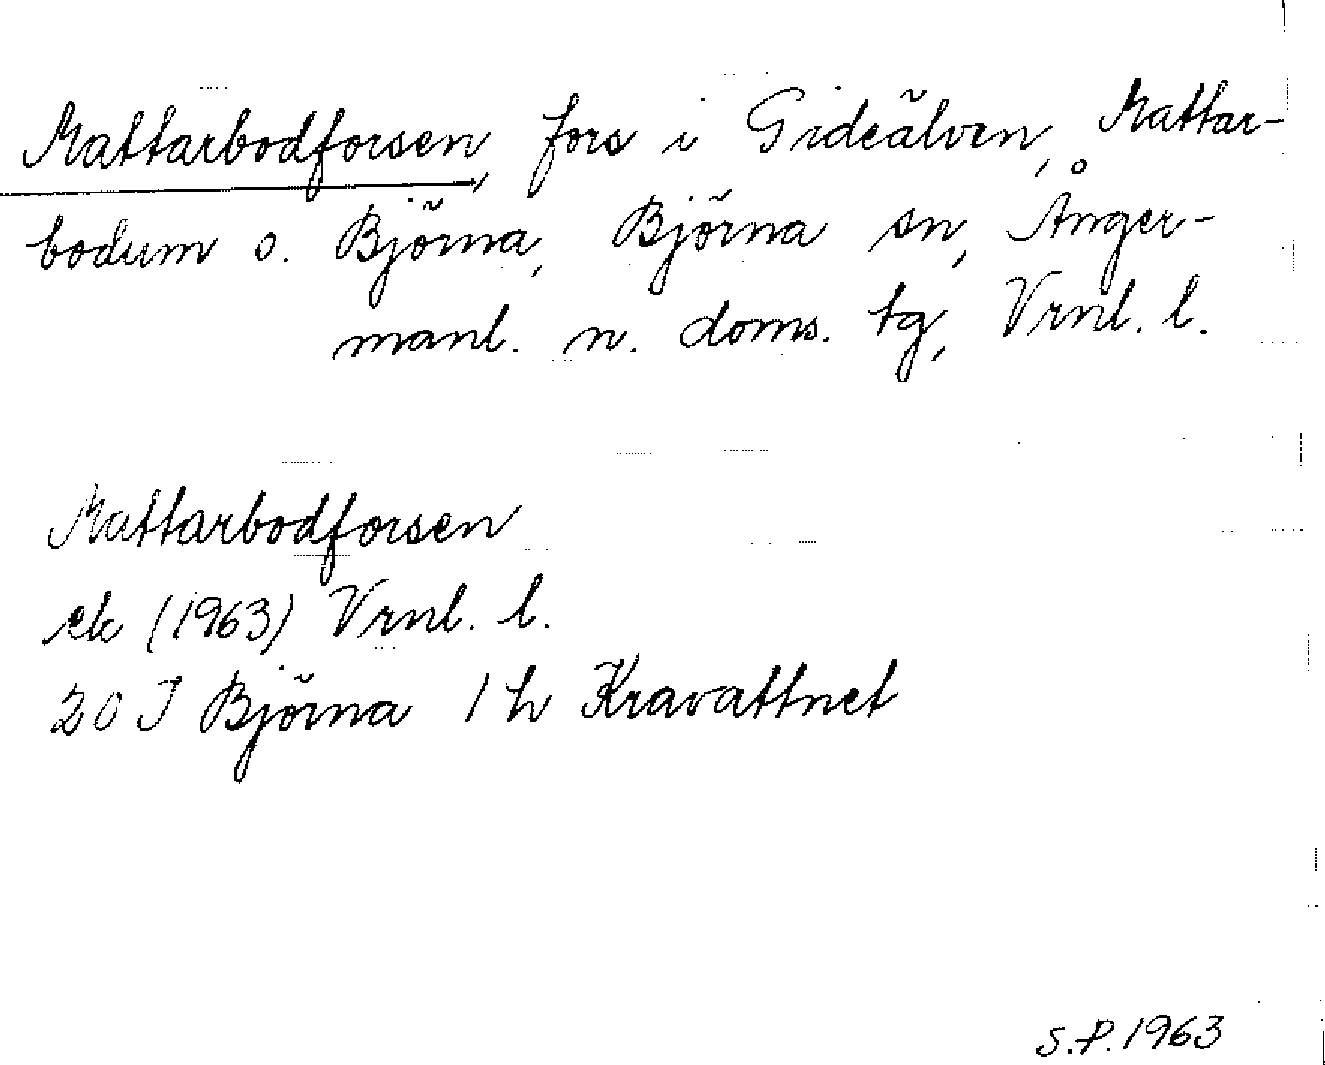 Mattarbodforsen, fors i Gideälven, Mattar-
bodum o. Björna, Björna sn, Ånger-
manl. n. doms. tg, Vrnl. l.
Mattarbodforsen
ek (1963) Vrnl. l.
20 J Björna 1 h Kravattnet
S.P. 1963